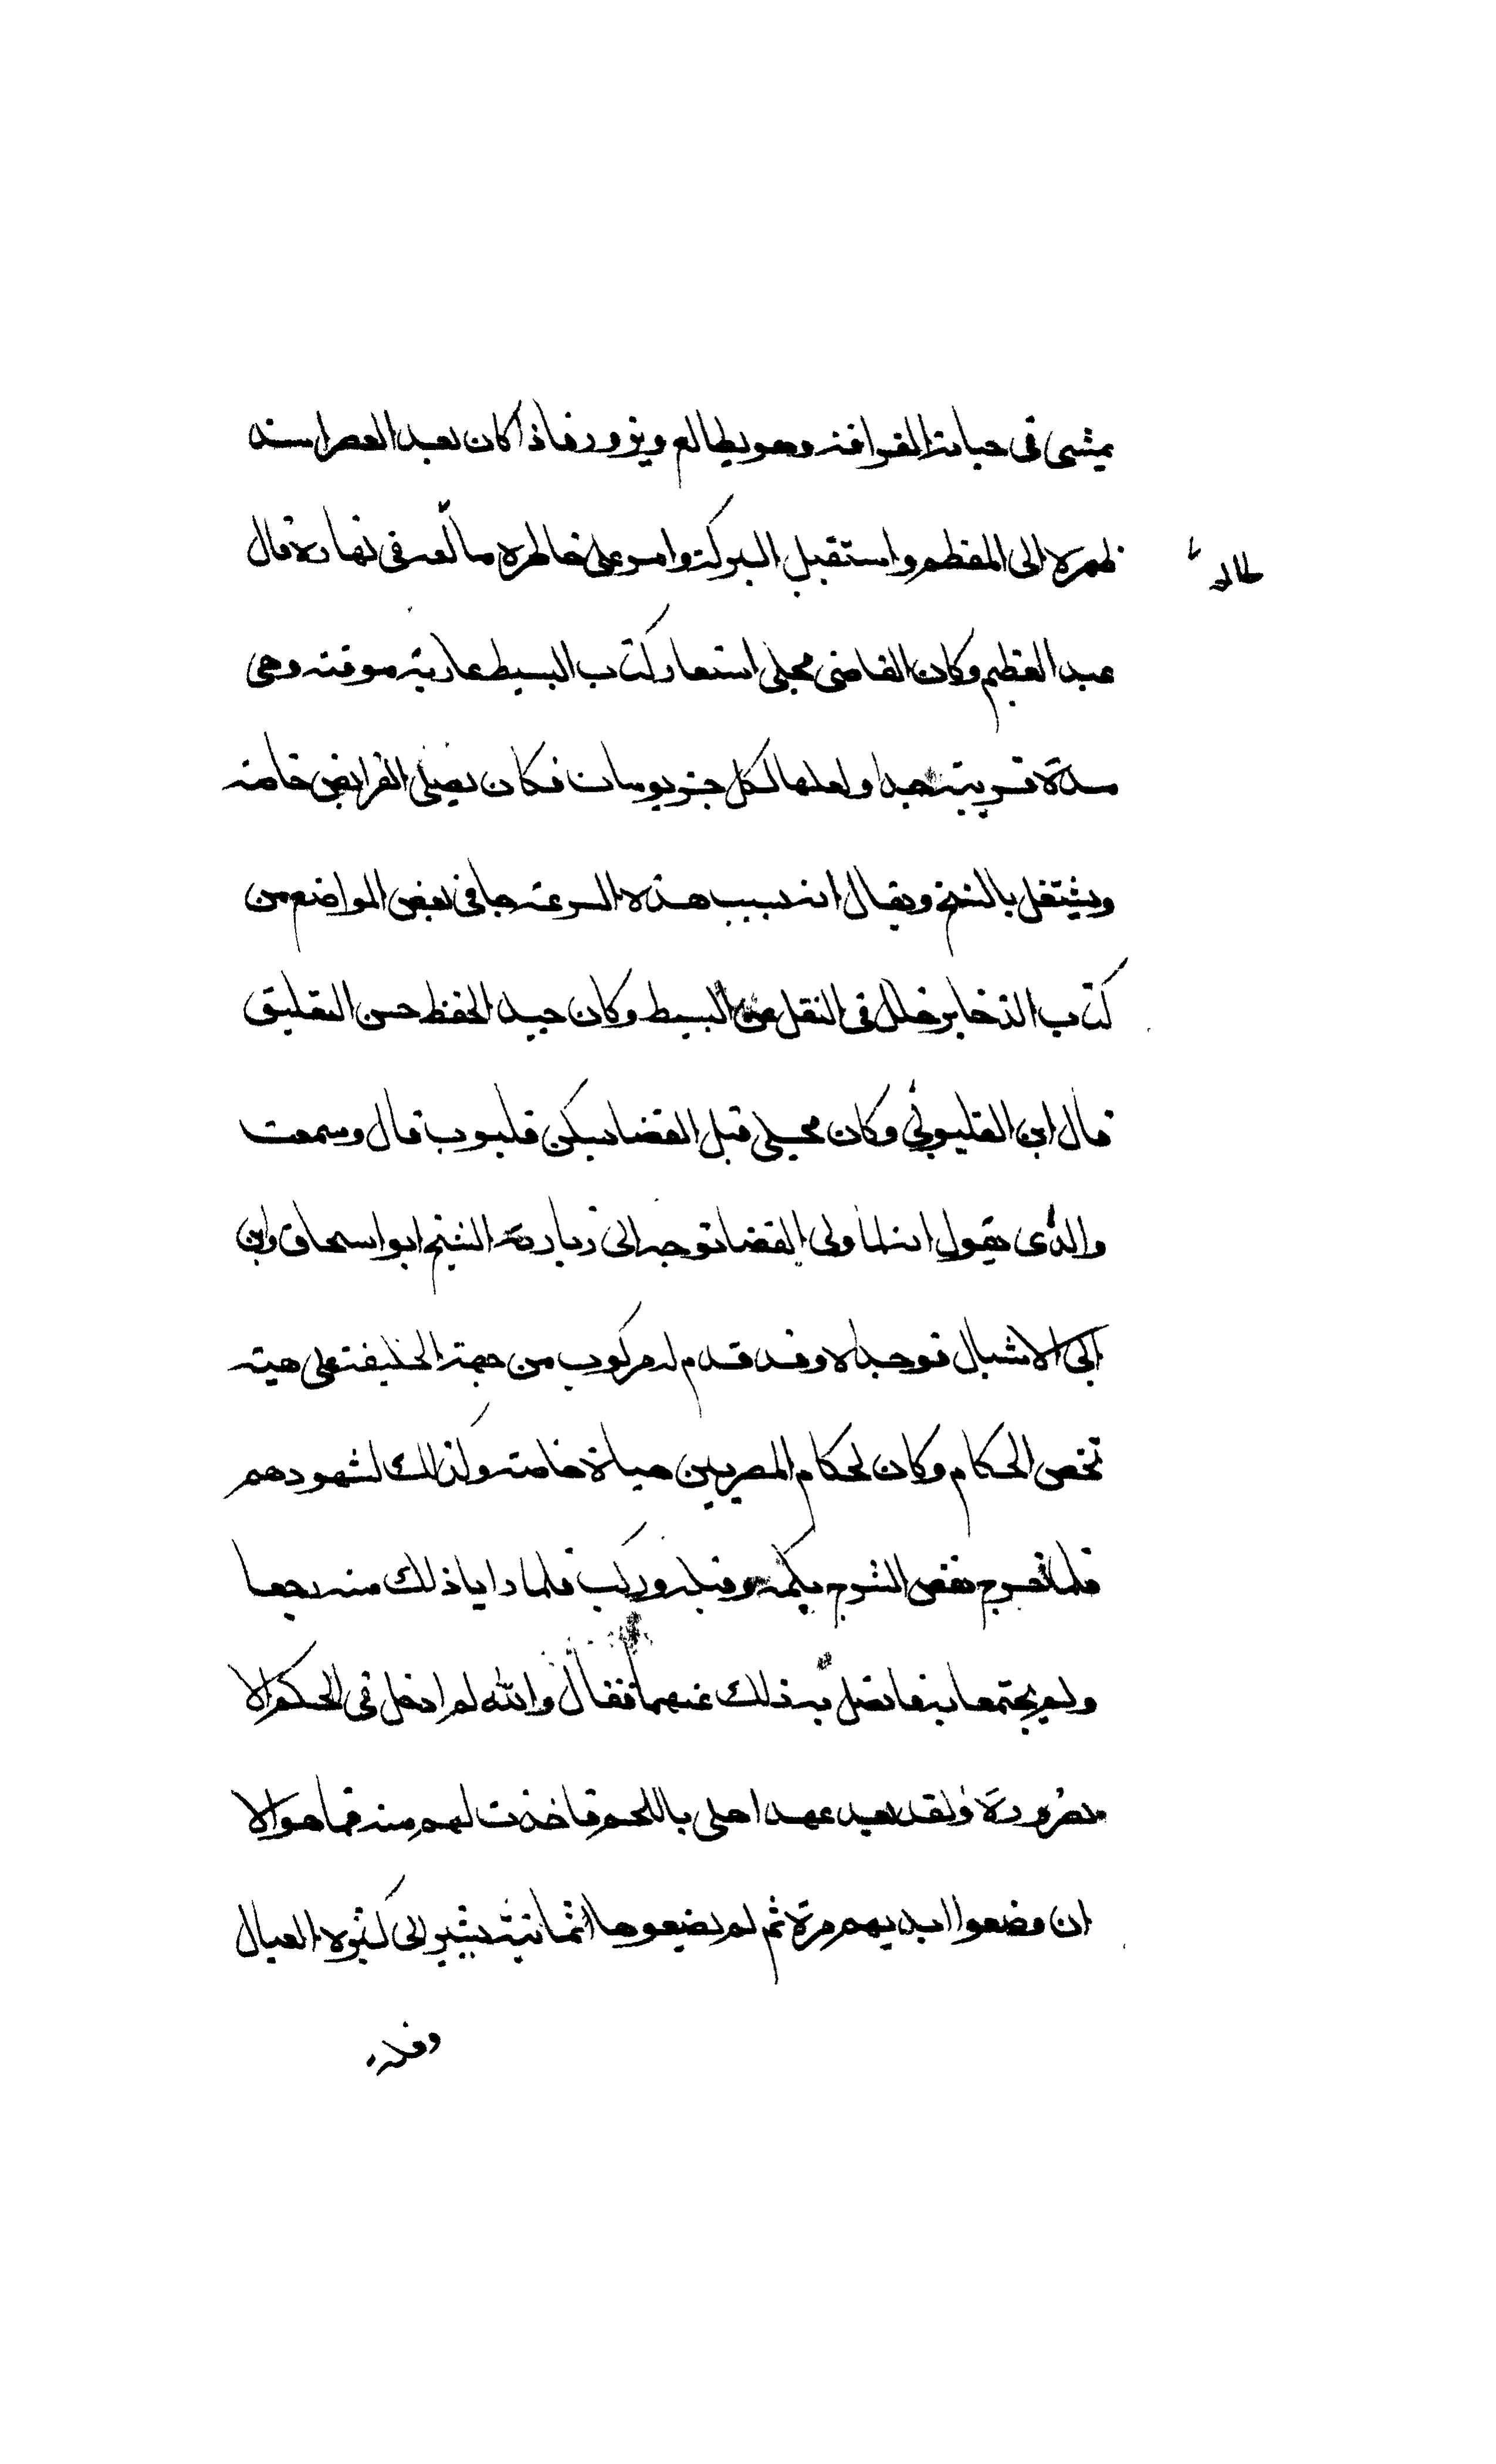 يمشى فى جبانة القرافة وهو يطالع ويزور فاذا كان بعد العصر اسند
ظهره الى المقطم واستقبل البركة وامر على خاطره ما آلفه فى نهاره قال
عبد العظيم وكان القاضى مجلى استعار كتاب البسيط عارية موقتة وهى
مدة قريبة جدا ولعلها لكل جزء يومان فكان يصلى الفرايض خاصة
ويشتغل بالنسخ ويقال انه بسبب هذه السرعة جا فى بعض المواضع من
كتاب الذخاير خلل فى النقل عن البسيط وكان جيد الحفظ حسن التعليق
قال ابن القليوبى وكان مجلى قبل القضا يسكن قليوب قال وسمعت
والدى يقول انه لما ولى القضا توجه الى زيارته الشيخ ابو اسحاق وابن
ابى الاشبال فوجداه وقد قدم له مركوب من جهة الخليفة على هيئة
تخص الحكام وكان لحكام المصريين هياة خاصة ولذلك لشهودهم
فلما خرج نفض السرج بكمه وقبله وركب فلما رايا ذلك منه رجعا
ولم يجتمعا به فاتصل به ذلك عنهما فقال والله لم ادخل فى الحكم الا
لضرورة ولقد بعد عهد اهلى باللحم فاخذت لهم منه فما هو الا
ان وضعوا ايديهم مرة ثم لم يضيعوها الثمانية يشير الى كثرة العيال